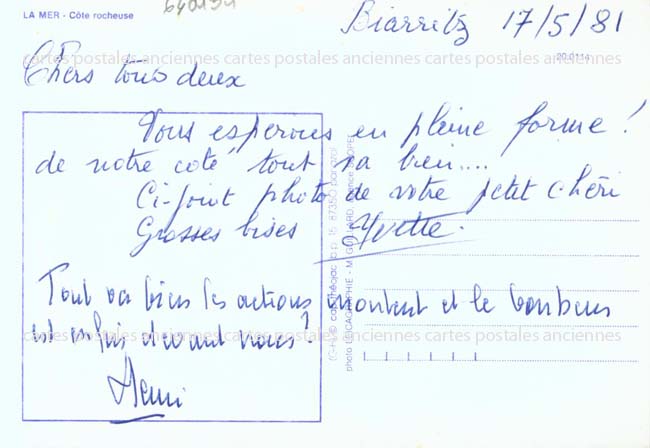 LA MER - Côte rocheuse
Biarritz 17/5/81
20.0114
cartes postales anciennes cartes postales anciennes cartes postales anciennes
Chers tous deux
Vous esperons en pleine forme !
de notre coté tout va bien....
Ci-joint photo de votre petit chéri
Grosses bises Yvette.
Tout va bien les actions montent et le bonheur
est enfin devant nous!
Henri
cartes postales anciennes cartes postales anciennes cartes postales anciennes
87350 panazol